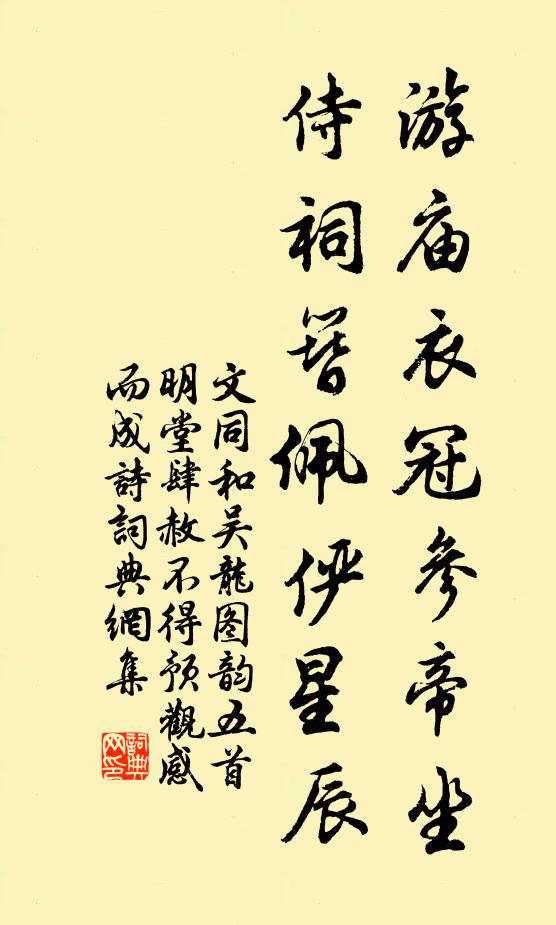 游庙衣冠參帝坐
侍祠簪佩俨星辰
文同和吴龍图韵五首
明堂肆赦不得预觀感
而成詩詞典網集
詞典
网印